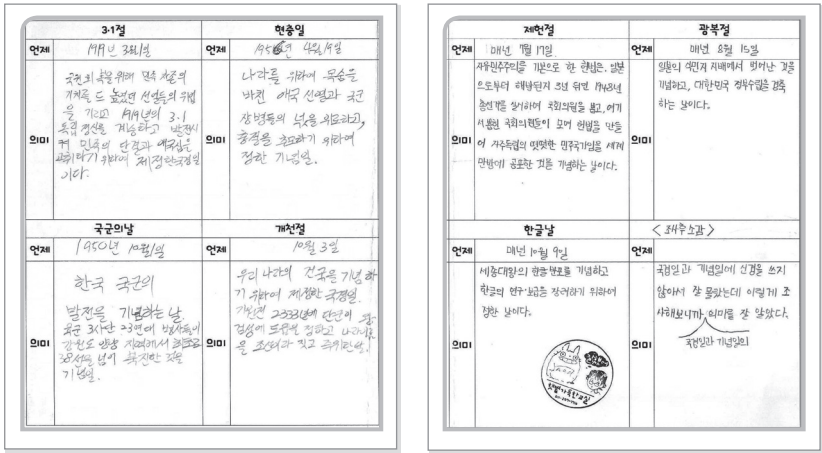 3·1절
언제 1919년 3월 1일
의미
국권회복을 위해 민족 자존의
가치를 드높였던 선열들의 위업
을 기리고 1919년의 3.1
독립정신을 계승하고 발전시
켜 민족의 단결과 애국심을
고취하기 위하여 제정한 국경일
이다.
현충일
언제 1956년 4월 19일
의미
나라를 위하여 목숨을
바친 애국 선열과 국군
장병들의 넋을 위로하고,
충절을 추모하기 위하여
정한 기념일.
국군의날
언제 1950년 10월 1일
의미
한국 국군의
발전을 기념하는 날.
육군 3사단 23연대 병사들이
강원도 양양 지역에서 최초로
38선을 넘어 북진한 것을
기념일.
개천절
언제 10월 3일
의미
우리 나라의 건국을 기념하
기 위하여 제정한 국경일.
기원전 2333년에 단군이 왕
검성에 도읍을 정하고 나라이름
을 조선이라 짓고 즉위한 날.
제헌절
언제 매년 7월 17일
의미
자유민주주의를 기본으로 한 헌법은, 일본
으로부터 해방된지 3년 뒤면 1948년
총선거를 실시하여 국회의원을 뽑고, 여기
서 뽑힌 국회의원들이 모여 헌법을 만들
어 자주독립의 떳떳한 민주국가임을 세계
만방에 공포한 것을 기념하는 날이다.
광복절
언제 매년 8월 15일
의미
일본의 식민지 지배에서 벗어난 것을
기념하고, 대한민국 정부수립을 경축
하는 날이다.
한글날
언제 매년 10월 9일
의미
세종대왕의 한글 반포를 기념하고
한글의 연구·보급을 장려하기 위하여
정한 날이다.
<조사후 소감>
언제
의미
국경일과 기념일에 신경을 쓰지
않아서 잘 몰랐는데 이렇게 조
사해보니까 의미를 잘 알았다.
국경일과 기념일의